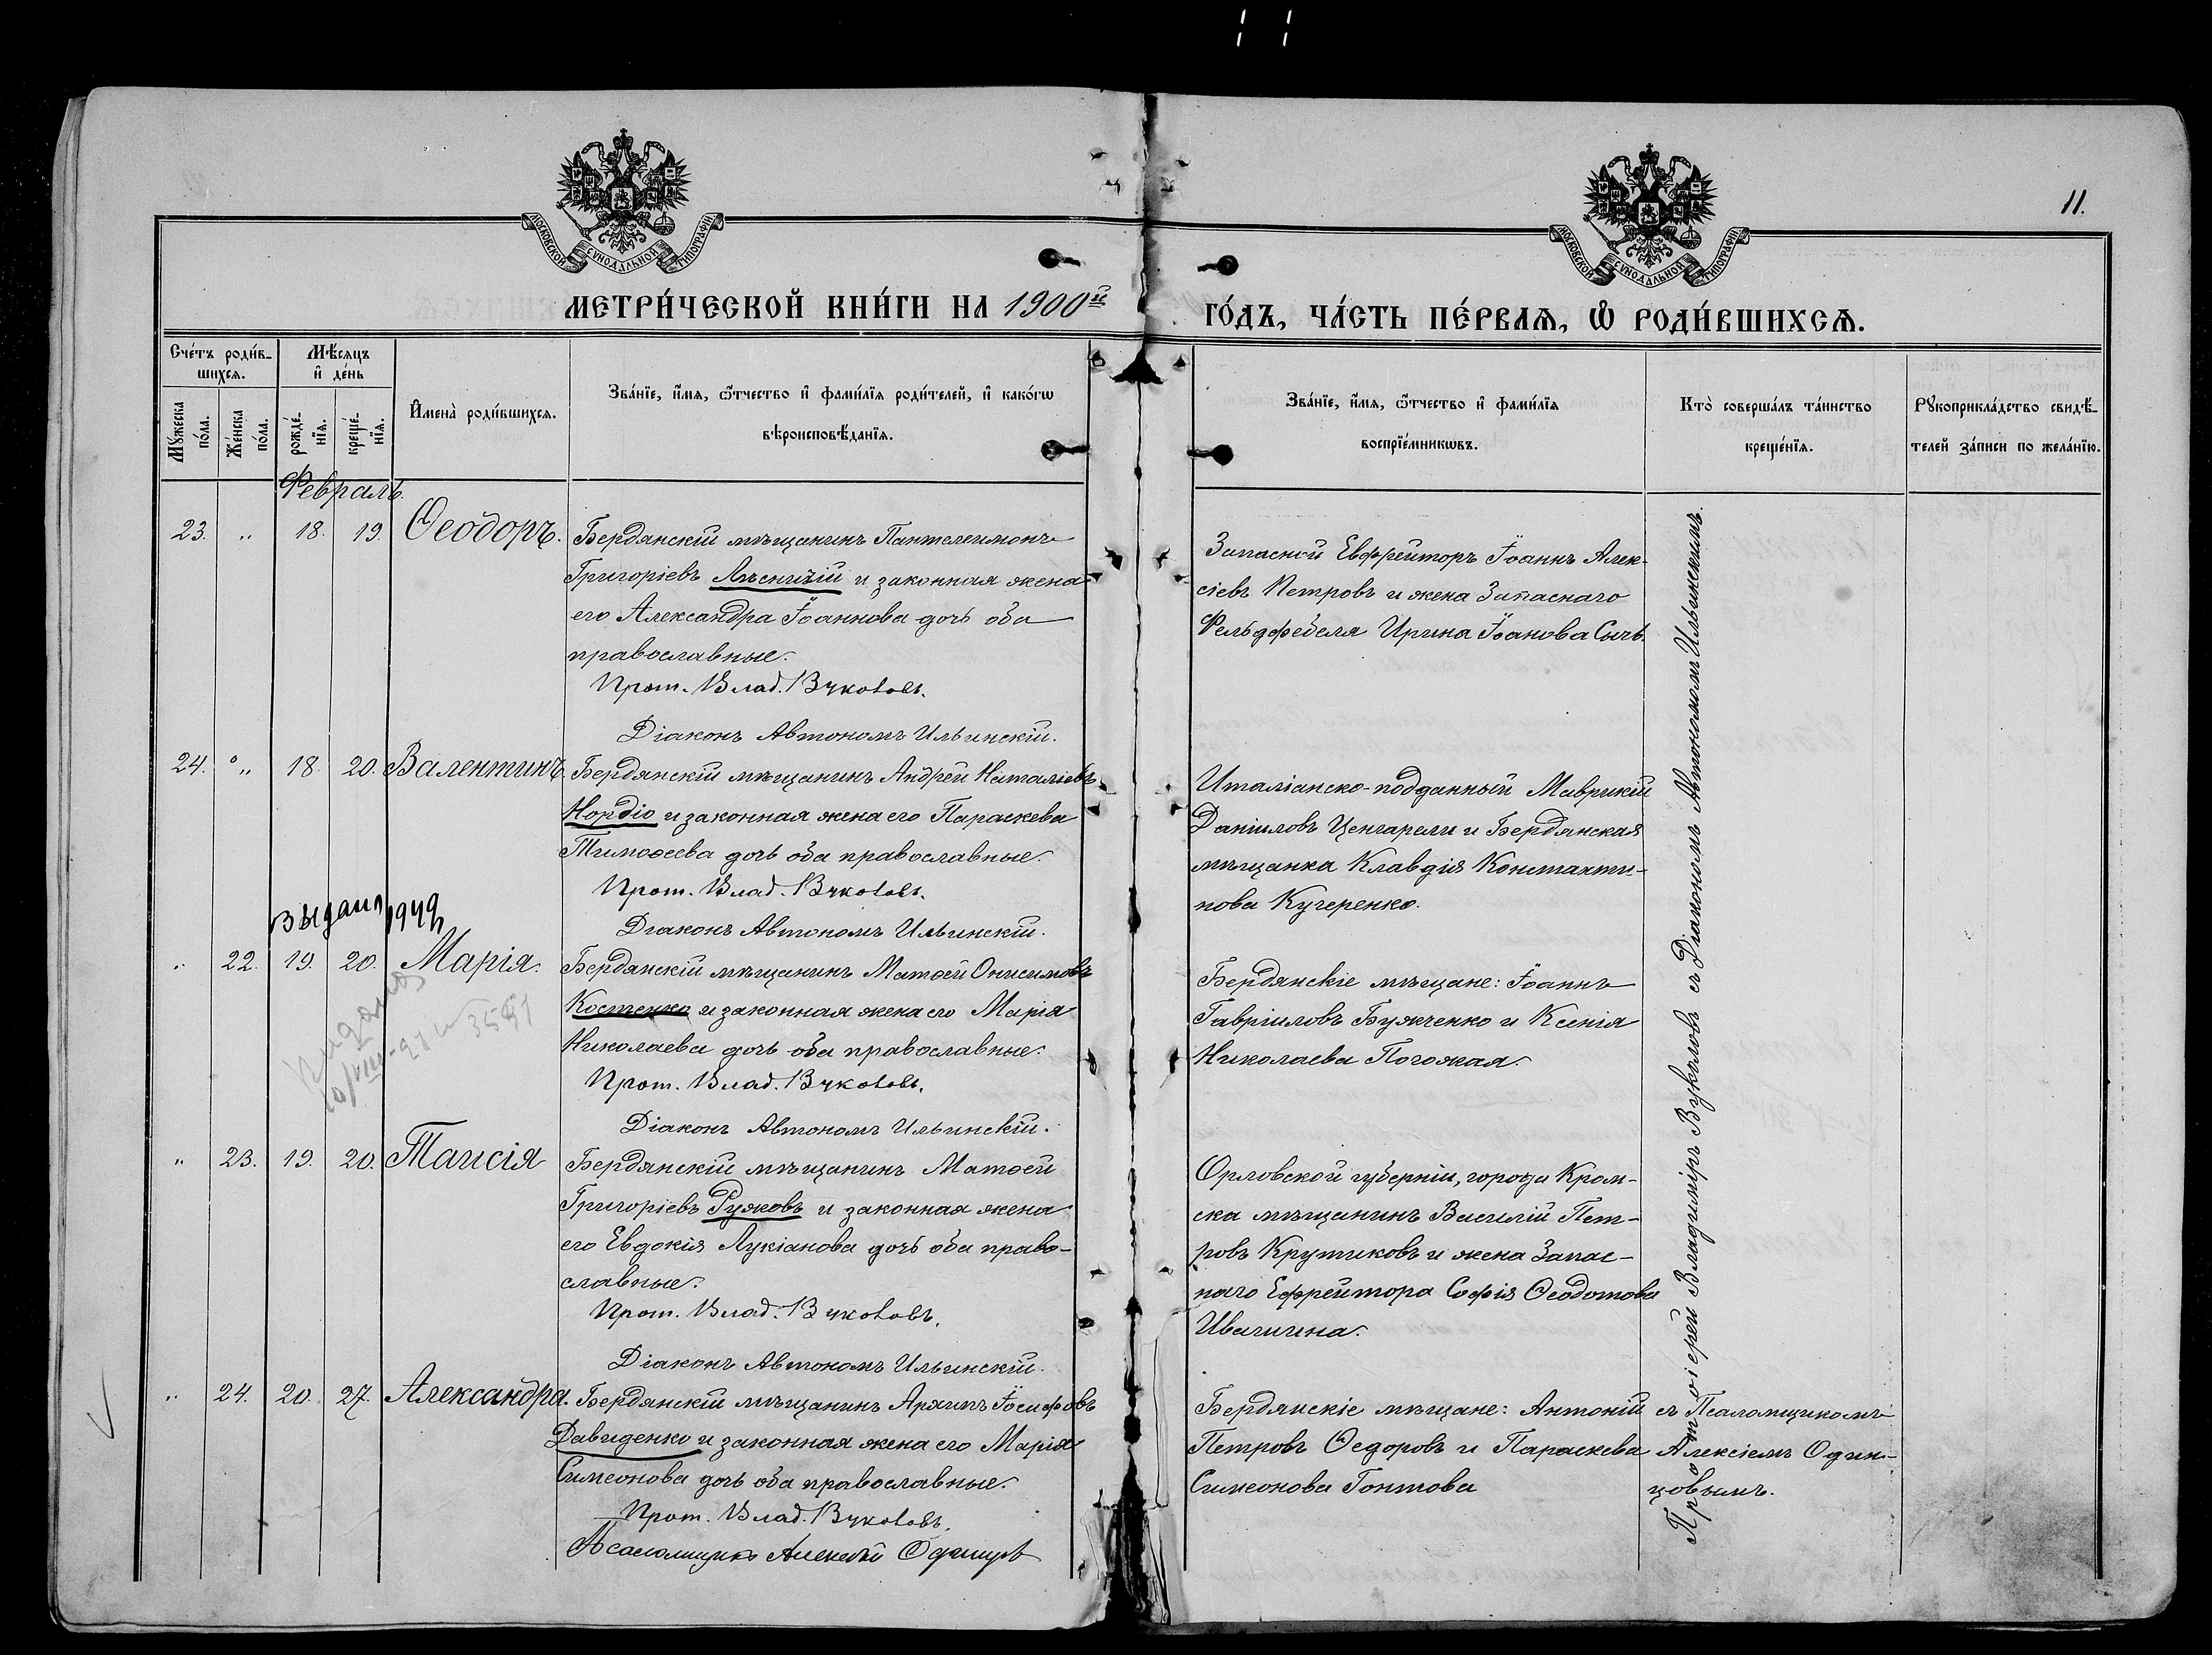 11.
МОСКОВСКОЙ СѴНОДАЛЬНОЙ ТИПОГРАФІИ
МОСКОВСКОЙ СѴНОДАЛЬНОЙ ТИПОГРАФІИ
МЕТРИ́ЧЕСКОЙ КНИ́ГИ НА 1900й ГО́ДЪ, ЧА́СТЬ ПЕ́РВАѦ, Ѡ РОДИ́ВШИХСѦ.
Сче́тъ роди́в-
шихсѧ.
Мꙋ́жеска по́ла.
Же́нска по́ла.
Мѣ́сѧцъ
и҆ де́нь
рожде́-
нїѧ.
креще́-
нїѧ.
И҆мена̀ роди́вшихсѧ.
Зва́нїе, и҆́мѧ, ѻ҆́тчество и҆ фами́лїѧ роди́телей, и҆ како́гѡ
вѣроисповѣ́данїѧ.
Зва́нїе, и҆́мѧ, ѻ҆́тчество и҆ фами́лїѧ
воспрїе́мникѡвъ.
Кто̀ соверша́лъ та́инство
креще́нїѧ.
Рꙋкоприкла́дство свидѣ́-
телей за́писи по жела́нїю.
Февраль.
23. „ 18. 19. Ѳеодоръ.
Бердянскій мѣщанинъ Пантелеимонъ
Григоріевъ Лѣсничій и законная жена
его Александра Іоаннова дочь оба
православные.
Прот. Влад. Вуколовъ.
Діаконъ Автономъ Ильинскій.
Запасной Евфрейторъ Іоаннъ Алек-
сіевъ Петровъ и жена Запаснаго
Фельдфебеля Ирина Іоанова Сычъ.
24. „ 18. 20. Валентинъ.
Бердянскій мѣщанинъ Андрей Наталіевъ
Нордіо и законная жена его Параскева
Тимоѳеева дочь оба православные.
Прот. Влад. Вуколовъ.
Діаконъ Автономъ Ильинскій.
Италіанско-подданный Маврикій
Даніиловъ Ценгарели и Бердянская
мѣщанка Клавдія Константи-
нова Кучеренко.
Выдан 1949
„ 22. 19. 20. Марія.
Бердянскій мѣщанинъ Матѳей Онисимовъ
Костенко и законная жена его Марія
Николаева дочь оба православные.
Прот. Влад. Вуколовъ.
Діаконъ Автономъ Ильинскій.
Бердянскіе мѣщане: Іоаннъ
Гавріиловъ Бужченко и Ксенія
Николаева Погожая.
„ 23. 19. 20. Таисія
Бердянскій мѣщанинъ Матѳей
Григоріевъ Ружовъ и законная жена
его Евдокія Лукіанова дочь оба право-
славные.
Прот. Влад. Вуколовъ.
Діаконъ Автономъ Ильинскій.
Орловской губерніи, города Кром-
ска мѣщанинъ Василій Пет-
ровъ Крутиковъ и жена Запас-
наго Ефрейтора Софія Ѳеодотова
Ивагина.
„ 24. 20. 27. Александра.
Бердянскій мѣщанинъ Архипъ Іосифовъ
Давиденко и законная жена его Марія
Симеонова дочь оба православные.
Прот. Влад. Вуколовъ.
Псаломщикъ Алексѣй Одинцовъ
Бердянскіе мѣщане: Антоній
Петровъ Ѳедоровъ и Параскева
Симеонова Гонтова
Протоіерей Владиміръ Вуколовъ съ Діакономъ Автономомъ Ильинскимъ.
съ Псаломщикомъ
Алексіемъ Один-
цовымъ.